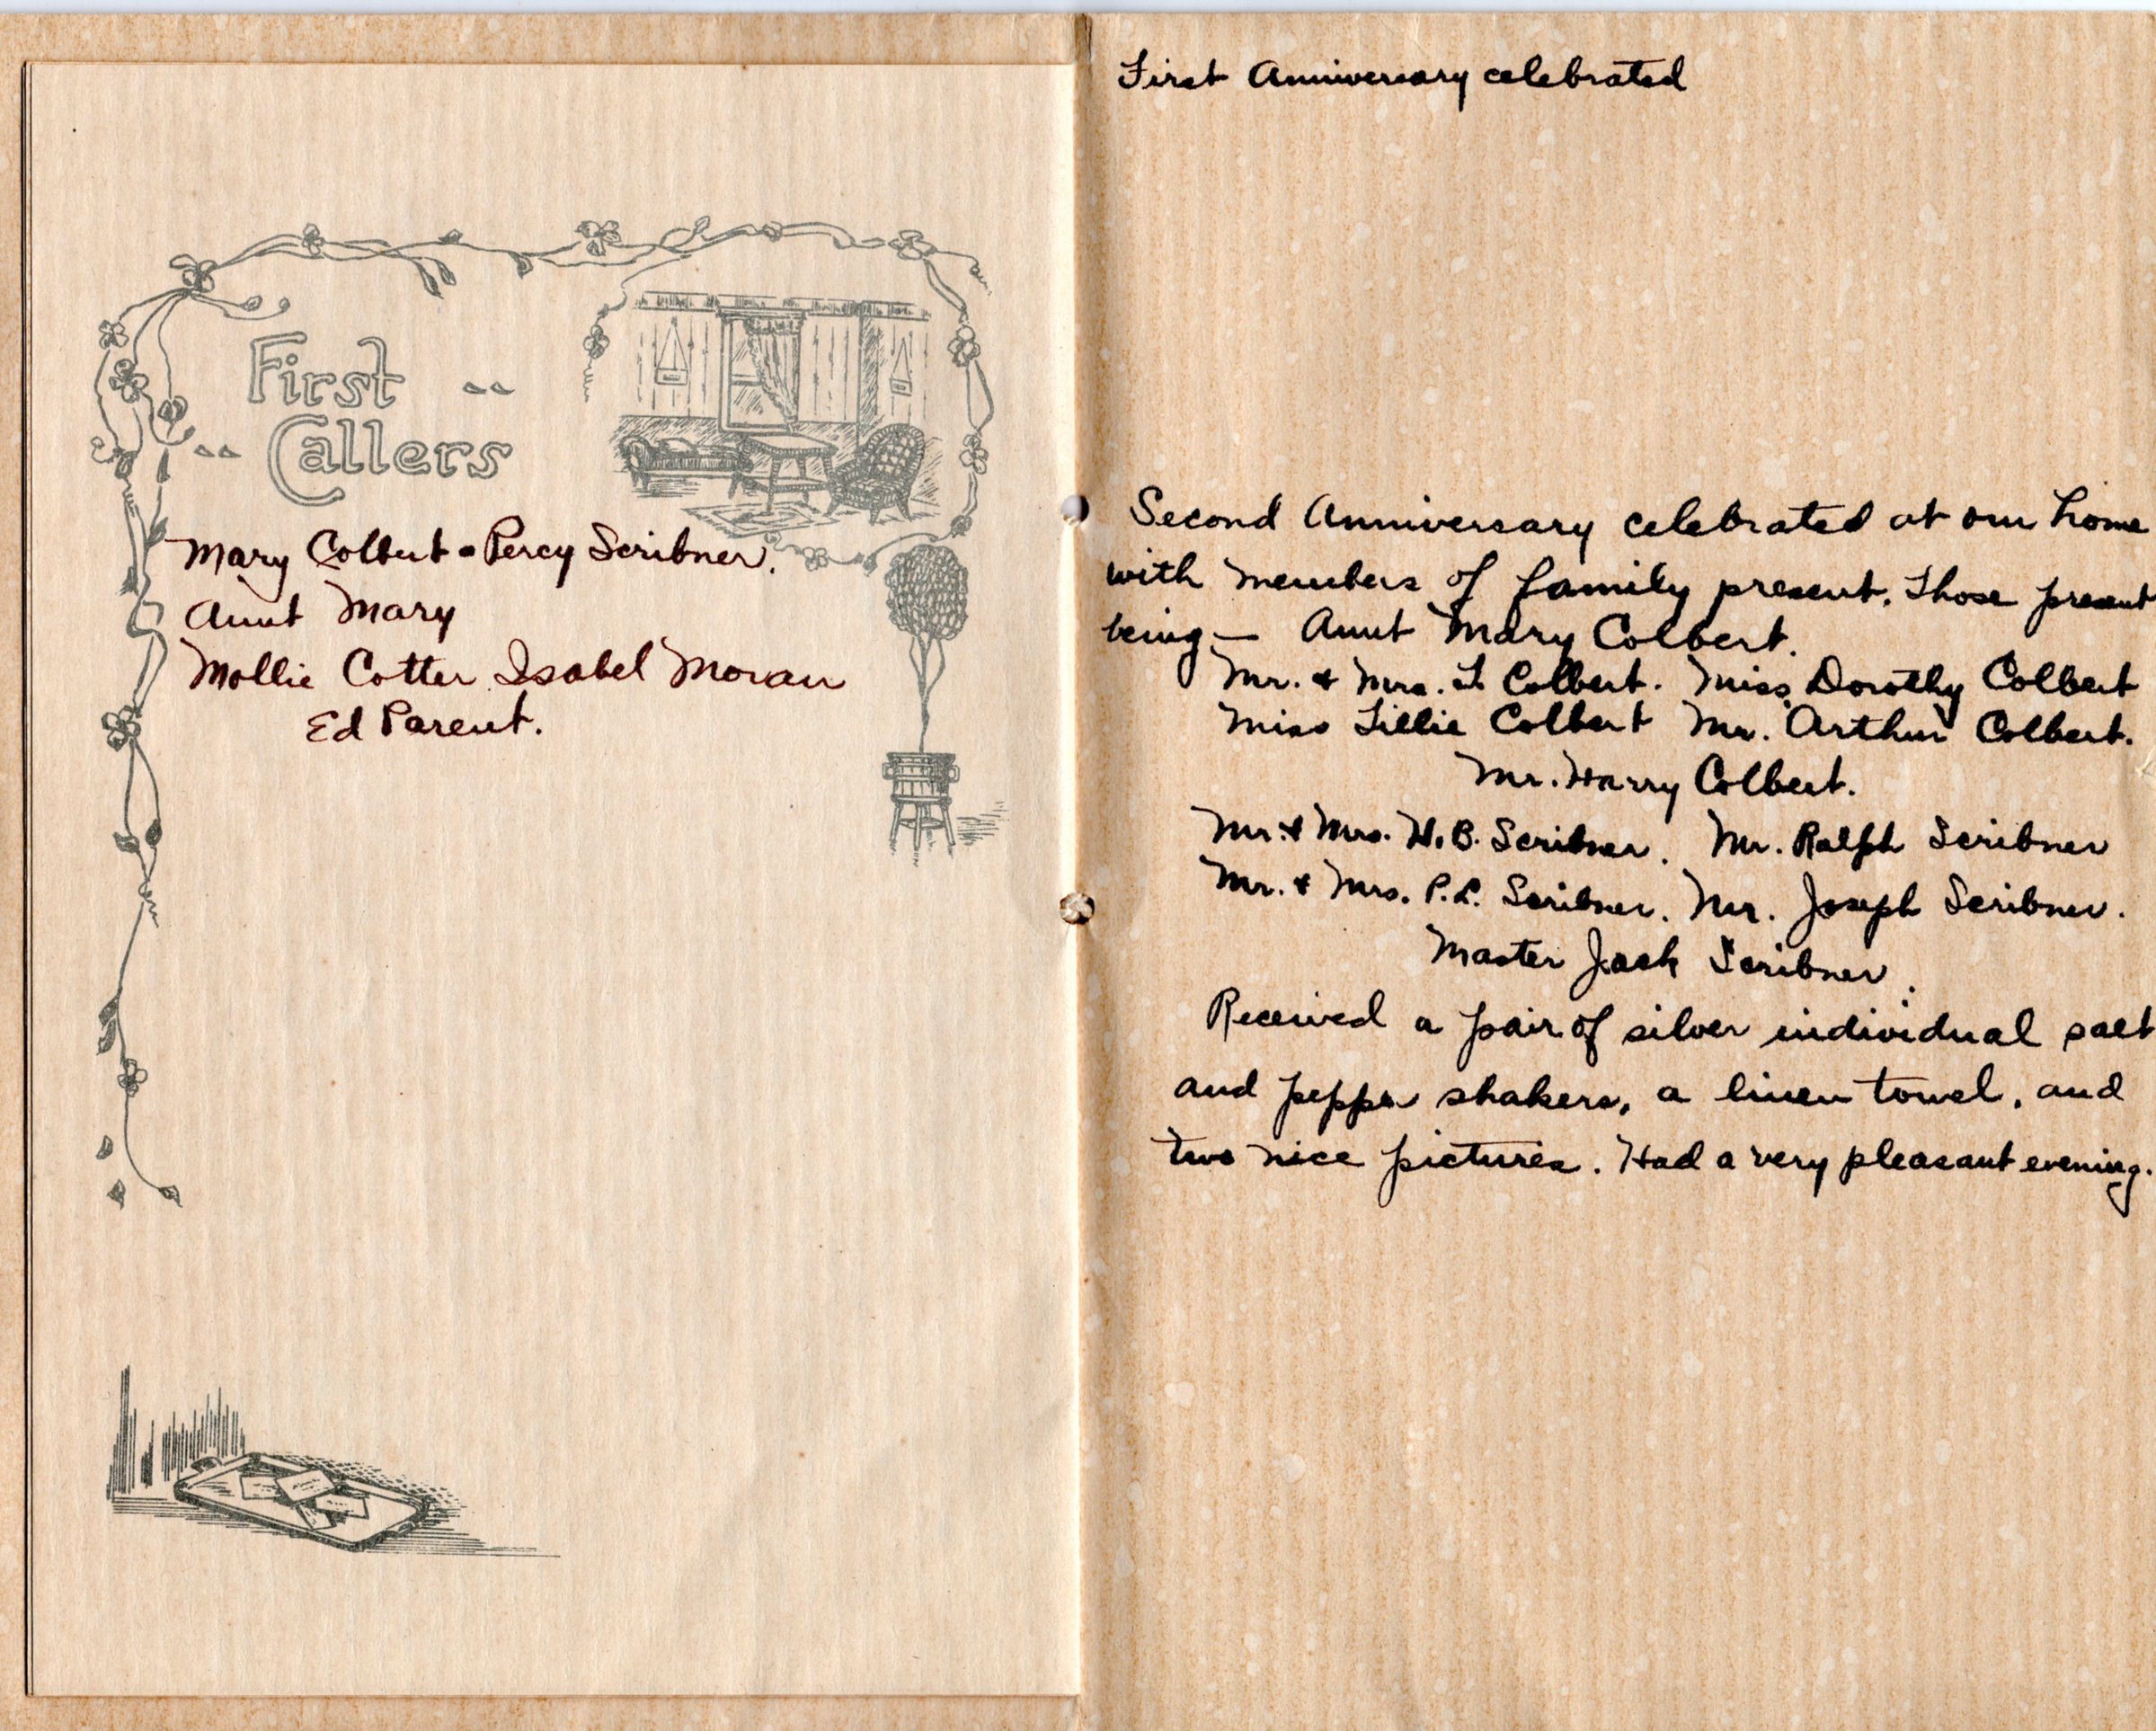 First
Callers
Mary Colbert - Percy Scribner.
Aunt Mary
Mollie Cotter Isabel Moran
Ed Parent.
First Anniversary celebrated
Second Anniversary celebrated at our home
with members of family present. Those present
being — Aunt Mary Colbert.
Mr. & Mrs. T. Colbert. Miss Dorothy Colbert
Miss Lillie Colbert Mr. Arthur Colbert.
Mr. Harry Colbert.
Mr. & Mrs. H. B. Scribner. Mr. Ralph Scribner
Mr. & Mrs. P. L. Scribner. Mr. Joseph Scribner.
Master Jack Scribner.
Received a pair of silver individual salt
and pepper shakers, a linen towel, and
two nice pictures. Had a very pleasant evening.